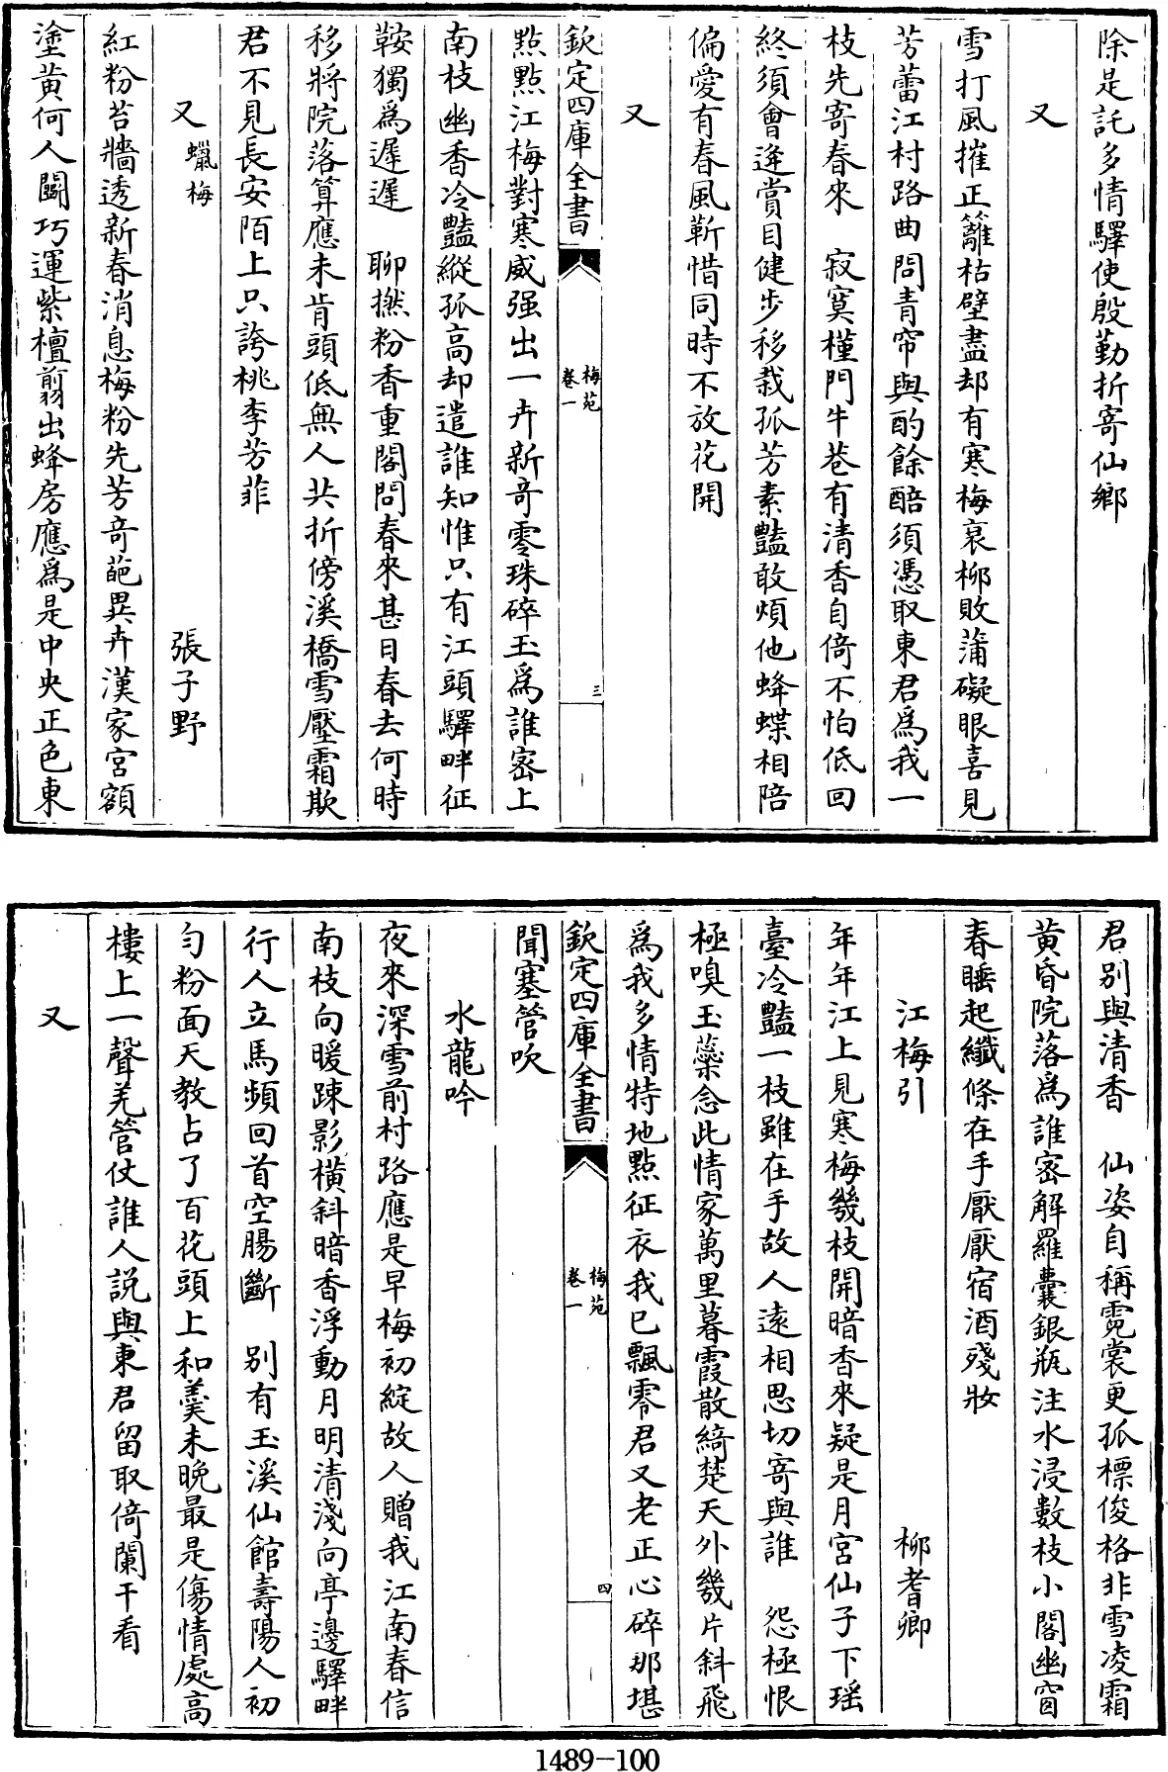 除是託多情驛使殷勤折寄仙鄉
又
雪打風摧正籬枯壁盡却有寒梅衰柳敗蒲礙眼喜見
芳蕾江村路曲問青帘與酌餘醅須憑取東君爲我一
枝先寄春來　寂寞槿門牛巷有清香自倚不怕低回
終須會逢賞目健步移栽孤芳素豔敢煩他蜂蝶相陪
偏愛有春風靳惜同時不放花開
又
欽定四庫全書
梅苑
卷一
三
點點江梅對寒威强出一卉新奇零珠碎玉爲誰密上
南枝幽香冷豔縱孤高却遣誰知惟只有江頭驛畔征
鞍獨爲遲遲　聊撚粉香重閣問春來甚日春去何時
移將院落算應未肯頭低無人共折傍溪橋雪壓霜欺
君不見長安陌上只誇桃李芳菲
又　蠟梅　張子野
紅粉苔牆透新春消息梅粉先芳奇葩異卉漢家宮額
塗黃何人鬬巧運紫檀翦出蜂房應爲是中央正色東
君別與清香　仙姿自稱霓裳更孤標俊格非雪凌霜
黃昏院落爲誰密解羅囊銀瓶注水浸數枝小閣幽窗
春睡起纖條在手厭厭宿酒殘妝
江梅引　柳耆卿
年年江上見寒梅幾枝開暗香來疑是月宮仙子下瑶
臺冷豔一枝雖在手故人遠相思切寄與誰　怨極恨
極嗅玉蘂念此情家萬里暮霞散綺楚天外幾片斜飛
爲我多情特地點征衣我已飄零君又老正心碎那堪
欽定四庫全書
梅苑
卷一
四
聞塞管吹
水龍吟
夜來深雪前村路應是早梅初綻故人贈我江南春信
南枝向暖踈影橫斜暗香浮動月明清淺向亭邊驛畔
行人立馬頻回首空腸斷　別有玉溪仙館壽陽人初
勻粉面天教占了百花頭上和羹未晚最是傷情處高
樓上一聲羌管仗誰人說與東君留取倚闌干看
又
1489-100